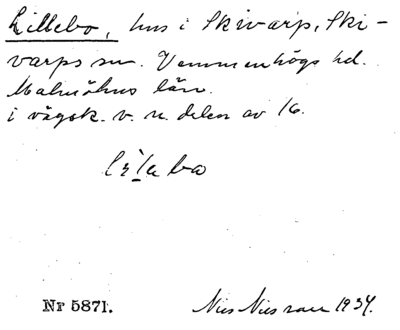 Lillebo, hus i Skivarp, Ski-
varps sn. Vemmenhögs hd.
Malmöhus län.
i vägsk. v. n. delen av 16.
Nr 5871. Nils Nilsson 1934.